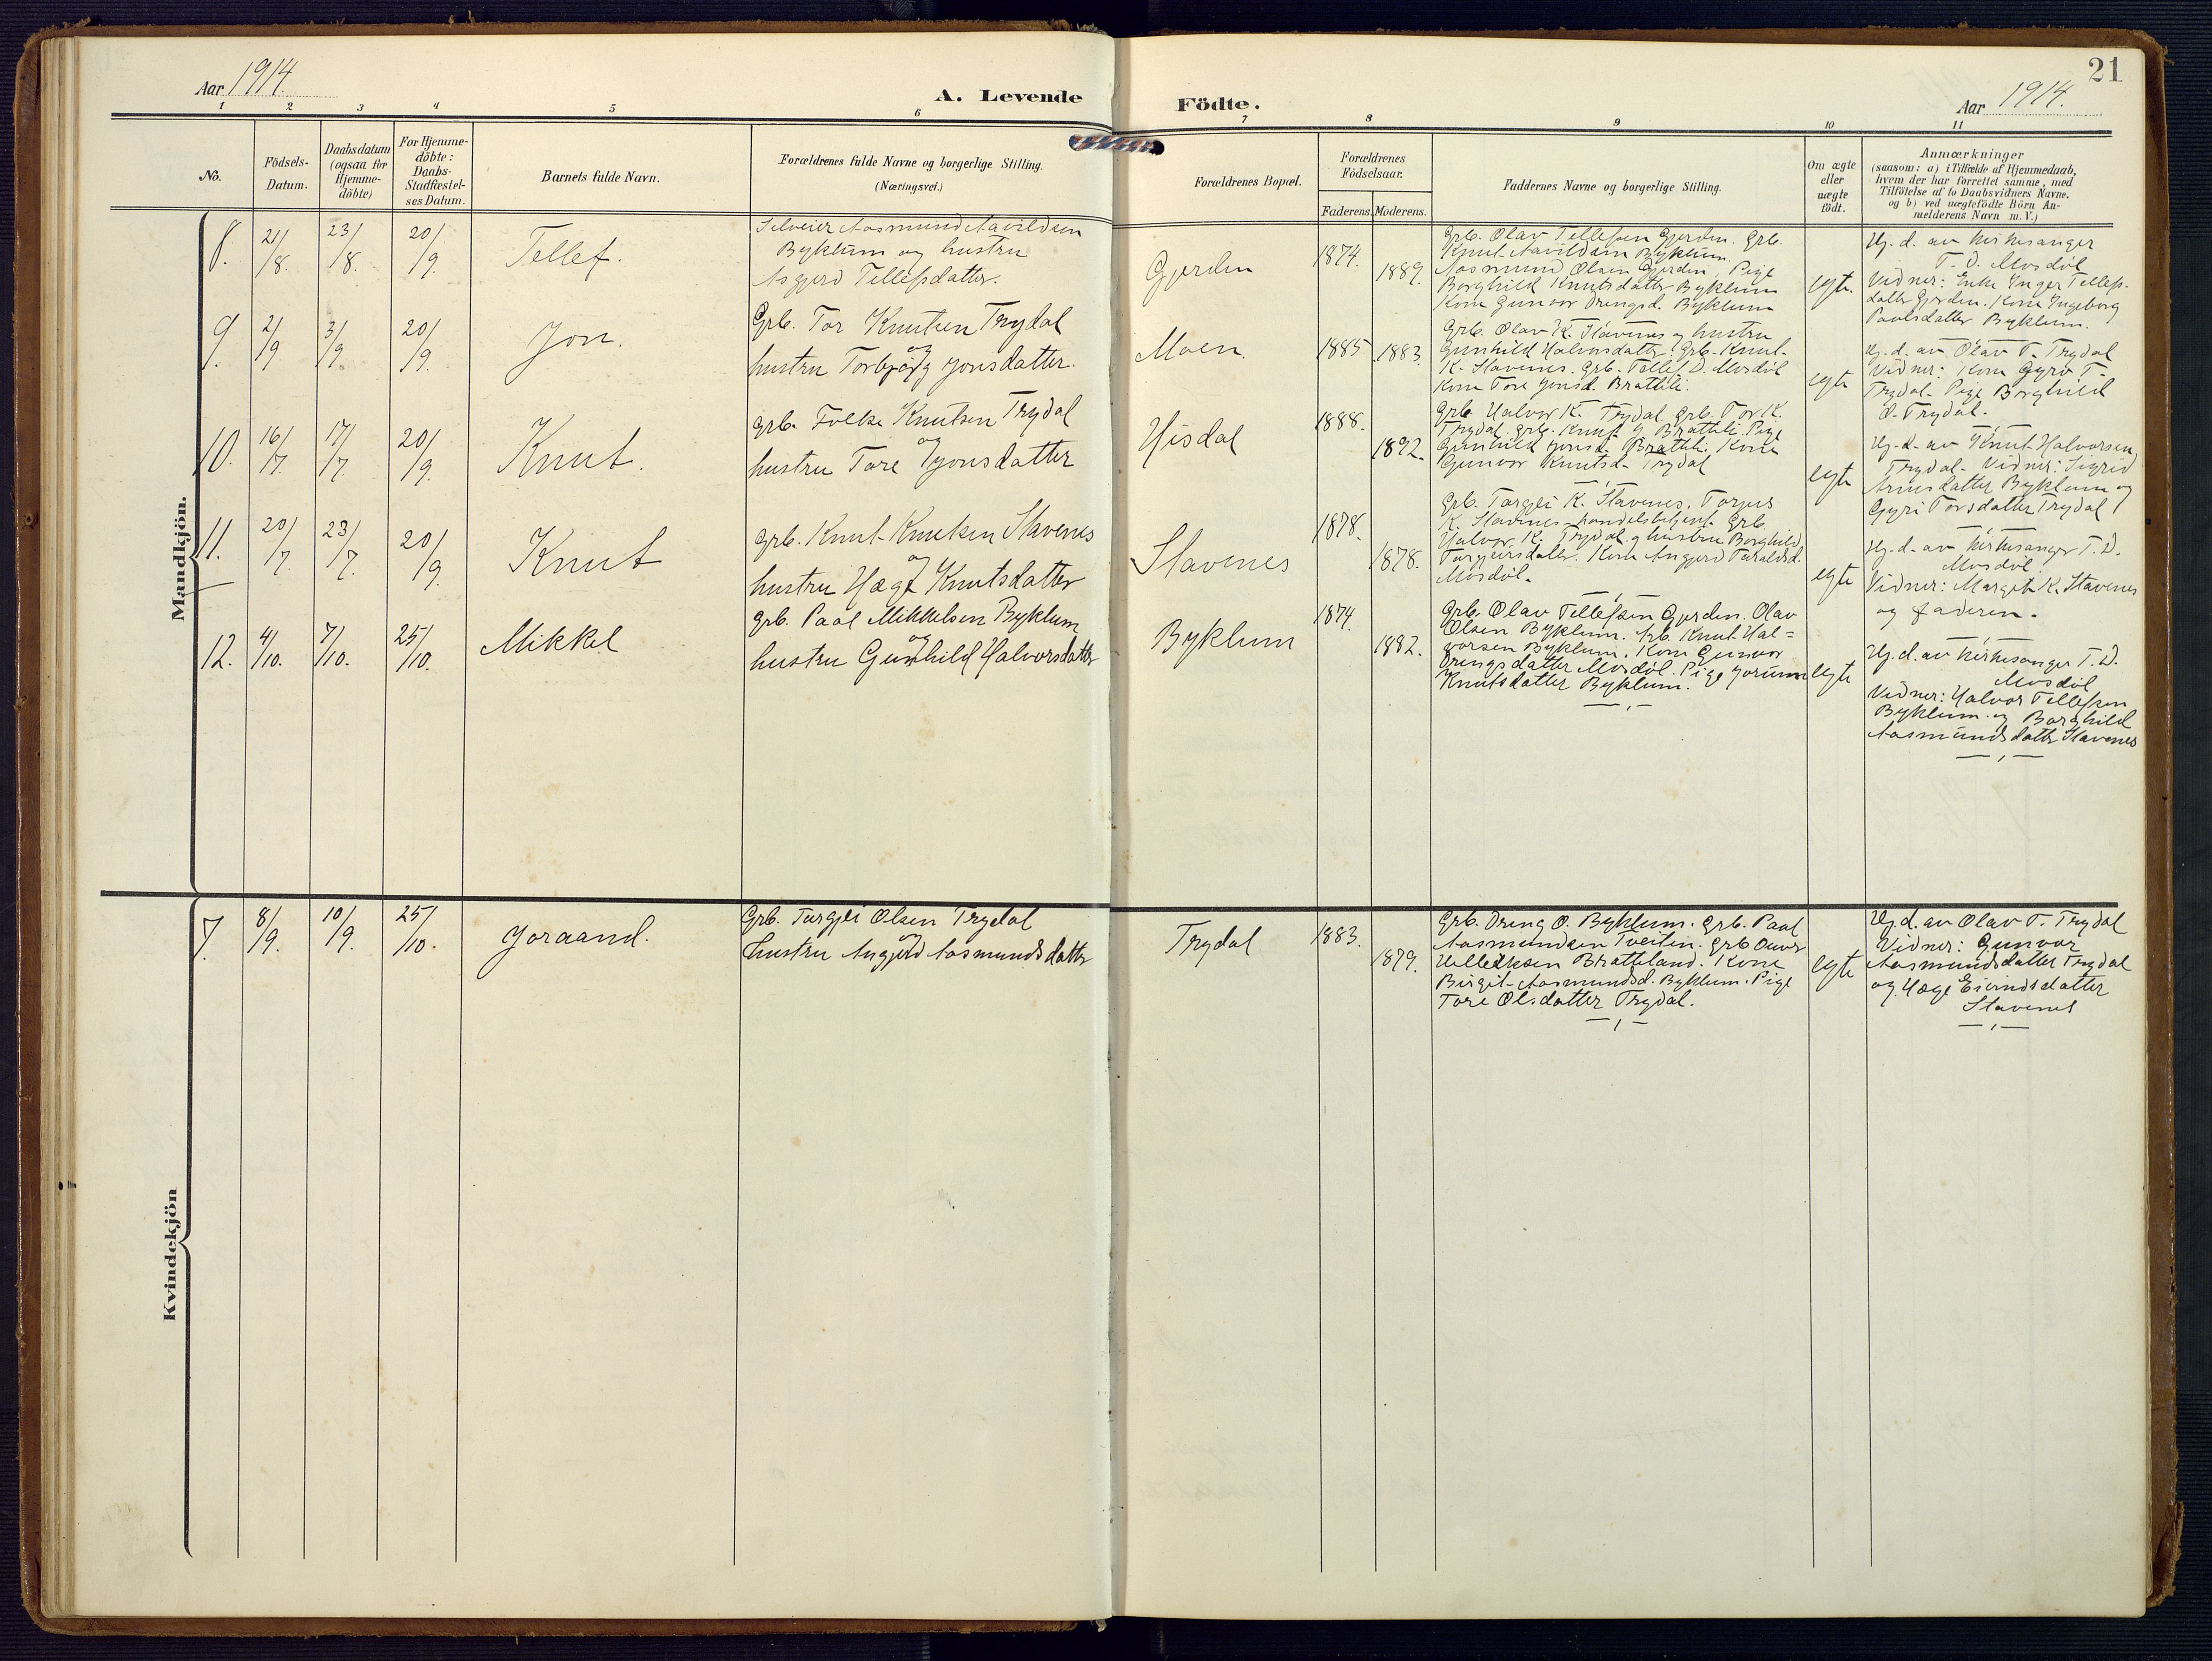 21
Aar 1914.
A. Levende Födte.
Aar 1914.
1 2 3 4 5 6 7 8 9 10 11
No.
Födsels-
Datum.
Daabsdatum
(ogsaa for
Hjemme-
döbte)
For Hjemme-
döbte:
Daabs-
Stadfæstel-
ses Datum.
Barnets fulde Navn.
Forældrenes fulde Navne og borgerlige Stilling.
(Næringsvei.)
Forældrenes Bopæl.
Forældrenes
Födselsaar.
Faderens. Moderens.
Faddernes Navne og borgerlige Stilling.
Om ægte
eller
uægte
födt.
Anmærkninger
(saasom: a) i Tilfælde af Hjemmedaab,
hvem der har forrettet samme, med
Tilföielse af to Daabsvidners Navne,
og b) ved uægtefödte Börn An-
melderens Navn m. V.)
Mandkjön.
8. 21/8. 23/8. 20/9. Tellef.
Selveier Aasmund Aavildsen
Byklum og hustru
Asgjerd Tellefsdatter.
Gjerden 1874. 1889.
Grb. Olav Tellefsen Gjerden. Grb.
Knut Aavildsen Byklum.
Aasmund Olsen Gjerden, Pige
Borghild Knutsdatter Byklum
Kone Gunvor Drengsd. Byklum
egte.
Hj. d. av kirkesanger
T. D. Mosdöl
Vidner: Enke Inger Tellefs-
datter Gjerden. Kone Ingeborg
Paulsdatter Byklum.
9. 2/9 3/9. 20/9. Jon.
Grb. Tor Knutsen Trydal
og
hustru Torbjörg Jonsdatter.
Moen. 1885 1883.
Grb. Olav K. Stavenes og hustru
Gunhild Halvorsdatter. Grb. Knut
K. Stavenes. Grb. Tellef D. Mosdöl
Kone Tore Jonsd. Bratteli.
egte
Hj. d. av Olav T. Trydal
Vidner: Kone Gyro T.
Trydal. Pige Borghild
O. Trydal.
10. 16/7. 17/7. 20/9. Knut.
Grb. Folke Knutsen Trydal
og
hustru Tore Jonsdatter
Hisdal 1888. 1892.
Grb. Halvor K. Trydal, Grb. Tor K.
Trydal. Grb. Knut J. Bratteli. Pige
Gunhild Jonsd. Bratteli. Kone
Gunvor Knutsd. Trydal
egte
Hj. d. av Knut Halvorsen
Trydal. Vidner: Sigrid
Arnesdatter Byklum og
Gyri Torsdatter Trydal
11. 20/7. 23/7. 20/9. Knut
Grb. Knut Knutsen Stavenes
og
hustru Hæge Knutsdatter
Stavenes 1878. 1878.
Grb. Targjei K. Stavenes, Torjus
K. Stavenes handelsbetjent. Grb.
Halvor K. Trydal og hustru Borghild
Torgeirsdatter. Kone Angjerd Taraldsd.
Mosdöl.
egte
Hj. d. av kirkesanger T. D.
Mosdöl
Vidner: Margit K. Stavenes
og faderen.
12. 4/10. 7/10. 25/10. Mikkel
Grb. Paal Mikkelsen Byklum
og
hustru Gunhild Halvorsdatter
Byklum 1874. 1882.
Grb. Olav Tellefsen Gjerden. Olav
Olsen Byklum. Grb. Knut Hal=
vorsen Byklum. Kone Gunvor
Drengsdatter Mosdöl. Pige Jorunn
Knutsdatter Byklum.
egte
Hj. d. av kirkesanger T. D.
Mosdöl
Vidner: Halvor Tellefsen
Byklum og Borghild
Aasmundsdatter Stavenes
Kvindekjön
7. 8/9. 10/9. 25/10. Joraand.
Grb. Targjei Olsen Trydal
og
hustru Angjerd Aasmundsdatter
Trydal 1883. 1879.
Grb. Dreng O. Byklum. Grb. Paal
Aasmundsen Tveiten. Grb
Bratteland. Kone
Birgit Aasmundsd. Byklum. Pige
Tore Olsdatter Trydal.
egte
Hj. d. av Olav T. Trydal
Vidner: Gunvor
Aasmundsdatter Trydal
og Hæge Eivindsdatter
Stavenes